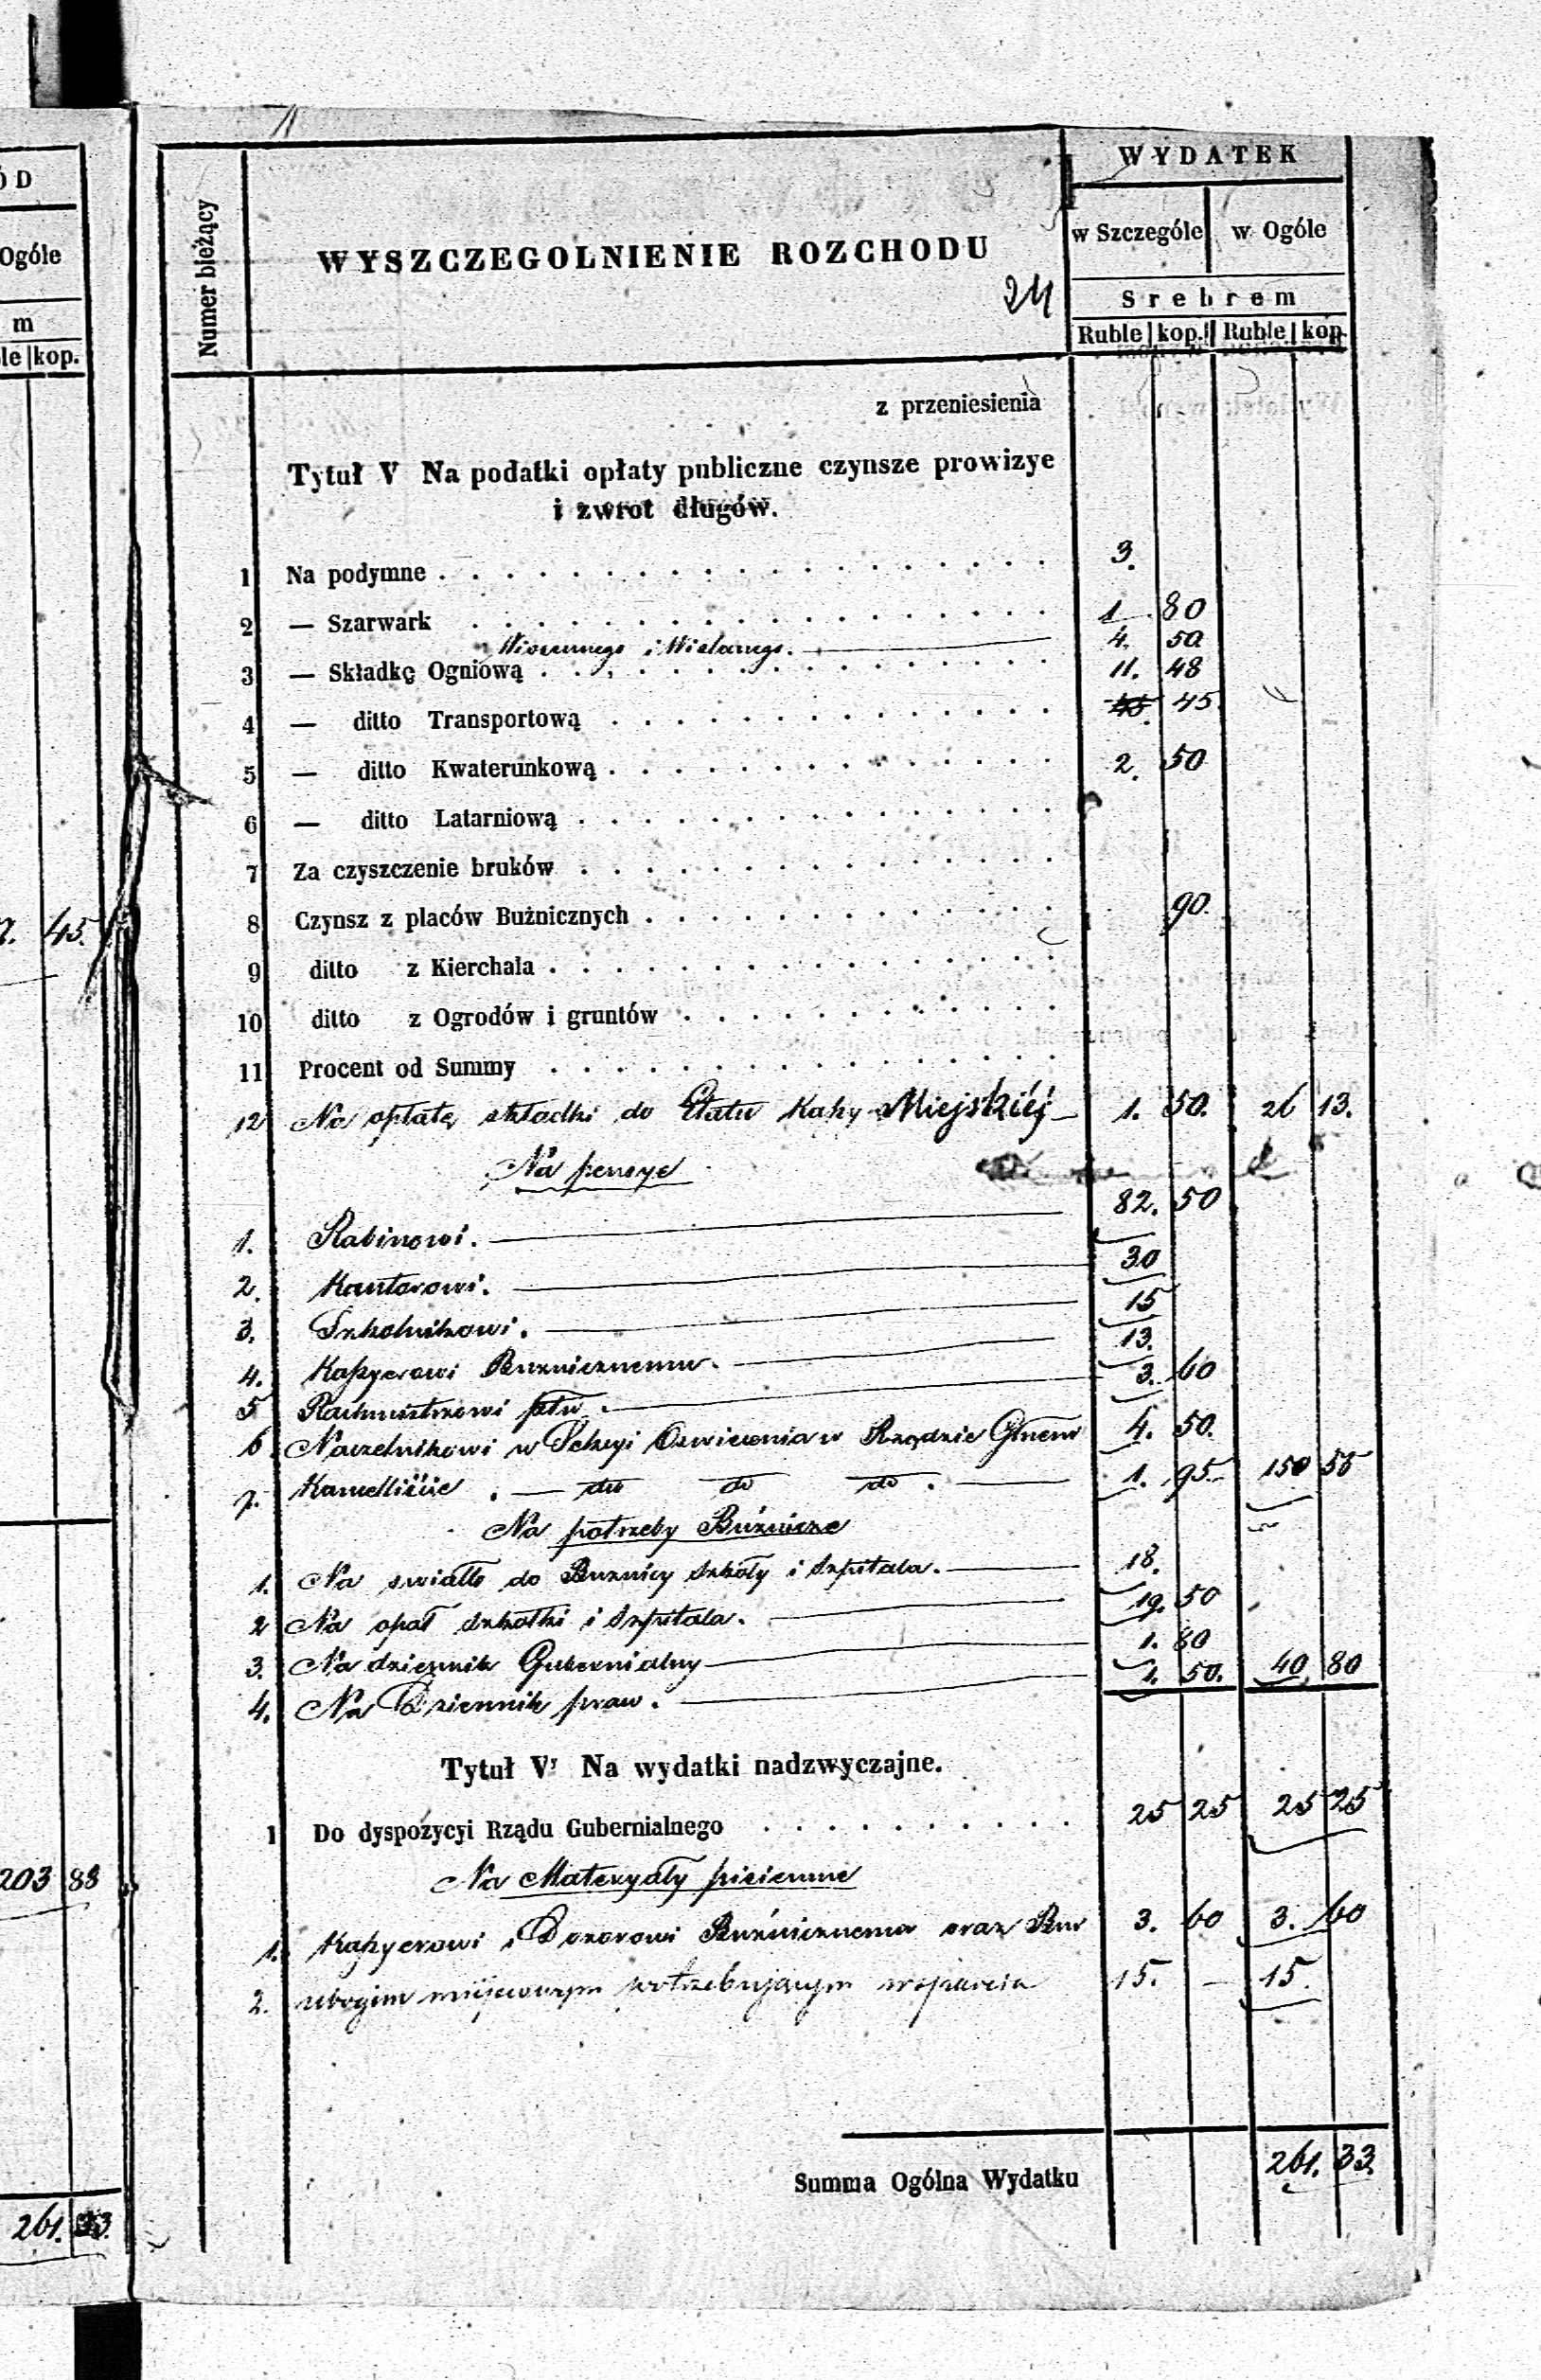 ÓD
Ogóle
m
le kop.
7. 45.
203 88
261. 33.
WYDATEK
Numer bieżący
WYSZCZEGOLNIENIE ROZCHODU
w Szczególe w Ogóle
24
Srebrem
Ruble kop. Ruble kop
z przeniesienia
Tytuł V Na podatki opłaty publiczne czynsze prowizye
i zwrot długów.
1 Na podymne . . . . . 3.
2 — Szarwark . . . . . 1 80
4. 50
3 — Składkę Ogniową . . . . . 11. 48
4 — ditto Transportową . . . . . 45. 45.
5 — ditto Kwaterunkową . . . . . 2. 50
6 — ditto Latarniową . . . . .
7 Za czyszczenie bruków . . . . .
8 Czynsz z placów Bużnicznych . . . . . 90.
9 ditto z Kierchala . . . . .
10 ditto z Ogrodów i gruntów . . . . .
11 Procent od Summy . . . . .
12 Na opłatę składki do Etatu Kaßy Miejskiéj — 1. 50. 26 13.
Na pensye
1. Rabinowi. — 82. 50
2. Kantorowi. — 30
3. Szkolnikowi. — 15
4. Kaßyerowi Buznicznemu. — 13.
5 Rachmistrzowi — 3. 60
6 Naczelnikowi w Sekcyi Oswiecenia w Rządzie 4. 50.
7. . — do do do . — 1. 95. 150 55
Na potrzeby Búznicze
1. Na swiatło do Buznicy szkoły i Szpitala. — 18.
2 Na opał szkołki i Szpitala. — 19. 50
3. Na dziennik Gubernialny — 1. 80
4. Na Dziennik praw. — 1. 50. 40 80
Tytuł VI Na wydatki nadzwyczajne.
1 Do dyspozycyi Rządu Gubernialnego . . . . . 25 25 25 25
Na Materyały pisienne
1. Kaßyerowi i Dozorowi Buźnicznemu oraz 3. 60 3. 60
2. ubogim miejscowym potrzebującym wsparcia 15. — 15.
Summa Ogólna Wydatku 261. 33.